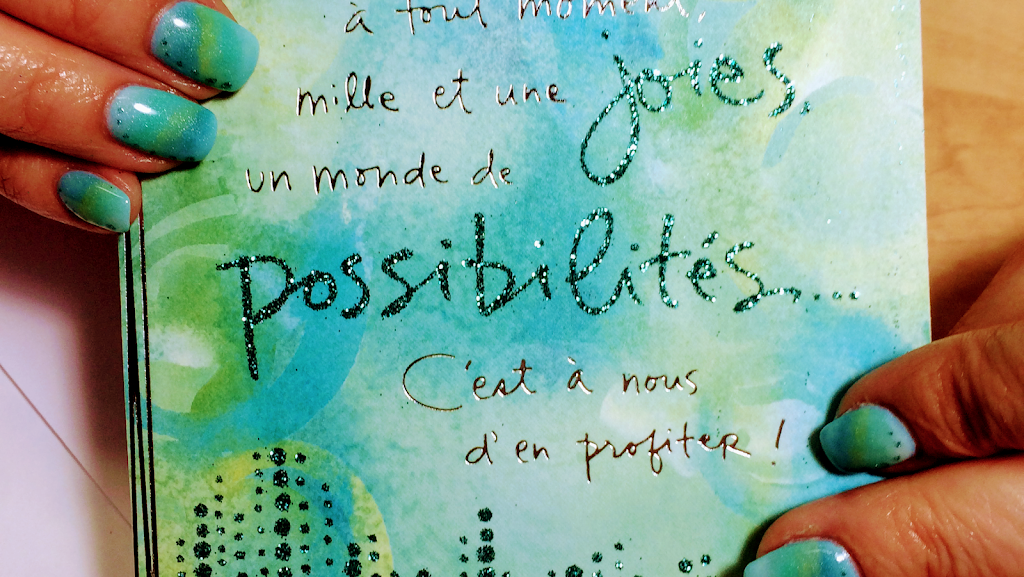 à tout moment,
mille et une joies,
un monde de
possibilités...
C'est à nous
d'en profiter !